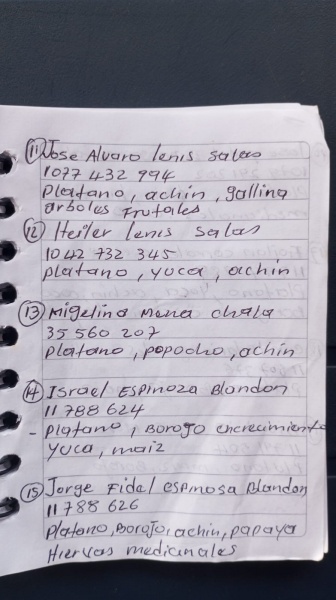 11 Jose Alvaro lenis salas
1077 432 994
Platano, achin, gallina
arboles Frutales
12 Heiler lenis salas
1042 732 345
platano, yuca, achin
13 migelina mena chala
35 560 207
platano, popocho, achin
14 Israel ESPINOZA Blandon
11 788 624
- Platano, Borojo encrecimiento
yuca, maiz
15 Jorge Fidel espinosa Blandon
11 788 626
Platano, Borojo, achin, papaya
Hiervas medicinales